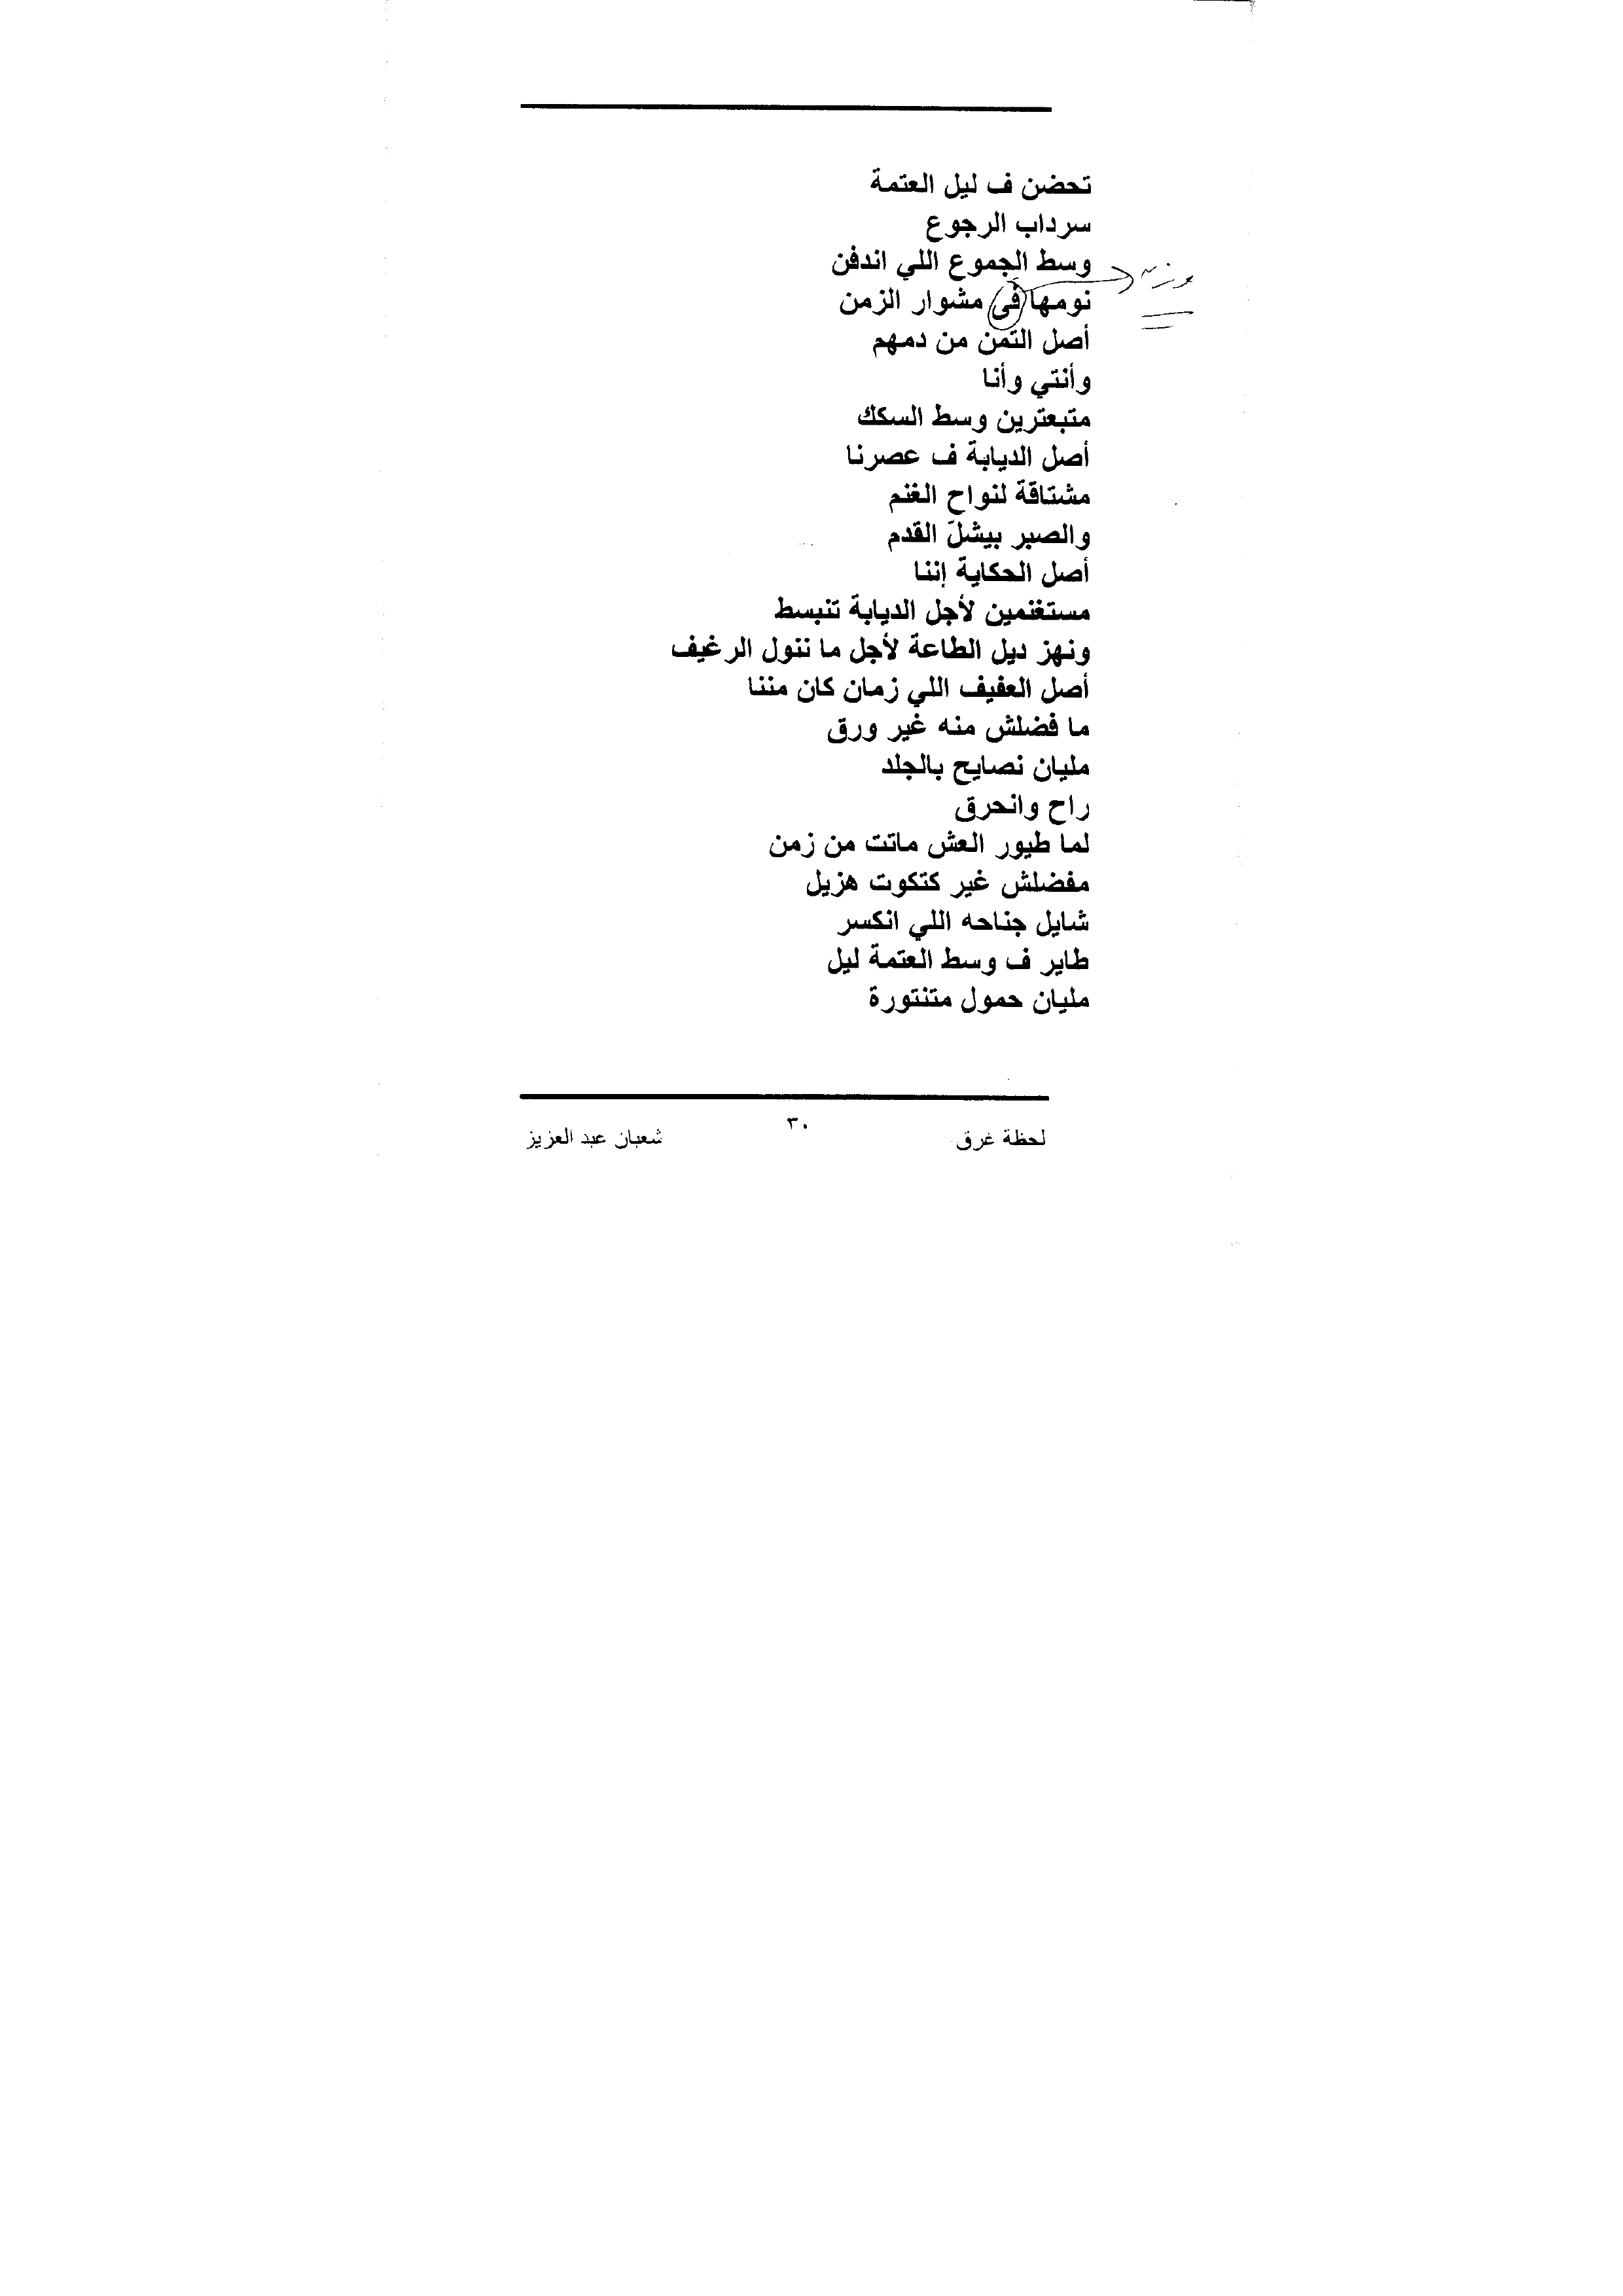 تحضن ف ليل العتمة
سرداب الرجوع
وسط الجموع اللي اندفن
نومها فى مشوار الزمن
أصل التمن من دمهم
وأنتي وأنا
متبعترين وسط السكك
أصل الديابة ف عصرنا
مشتاقة لنواح الغنم
والصبر بيشلّ القدم
أصل الحكاية إننا
مستغنمين لأجل الديابة تنبسط
ونهز ديل الطاعة لأجل ما ننول الرغيف
أصل العفيف اللي زمان كان مننا
ما فضلش منه غير ورق
مليان نصايح بالجلد
راح وانحرق
لما طيور العش ماتت من زمن
مفضلش غير كتكوت هزيل
شايل جناحه اللي انكسر
طاير ف وسط العتمة ليل
مليان حمول متنتورة
لحظة غرق
٣٠
شعبان عبد العزيز